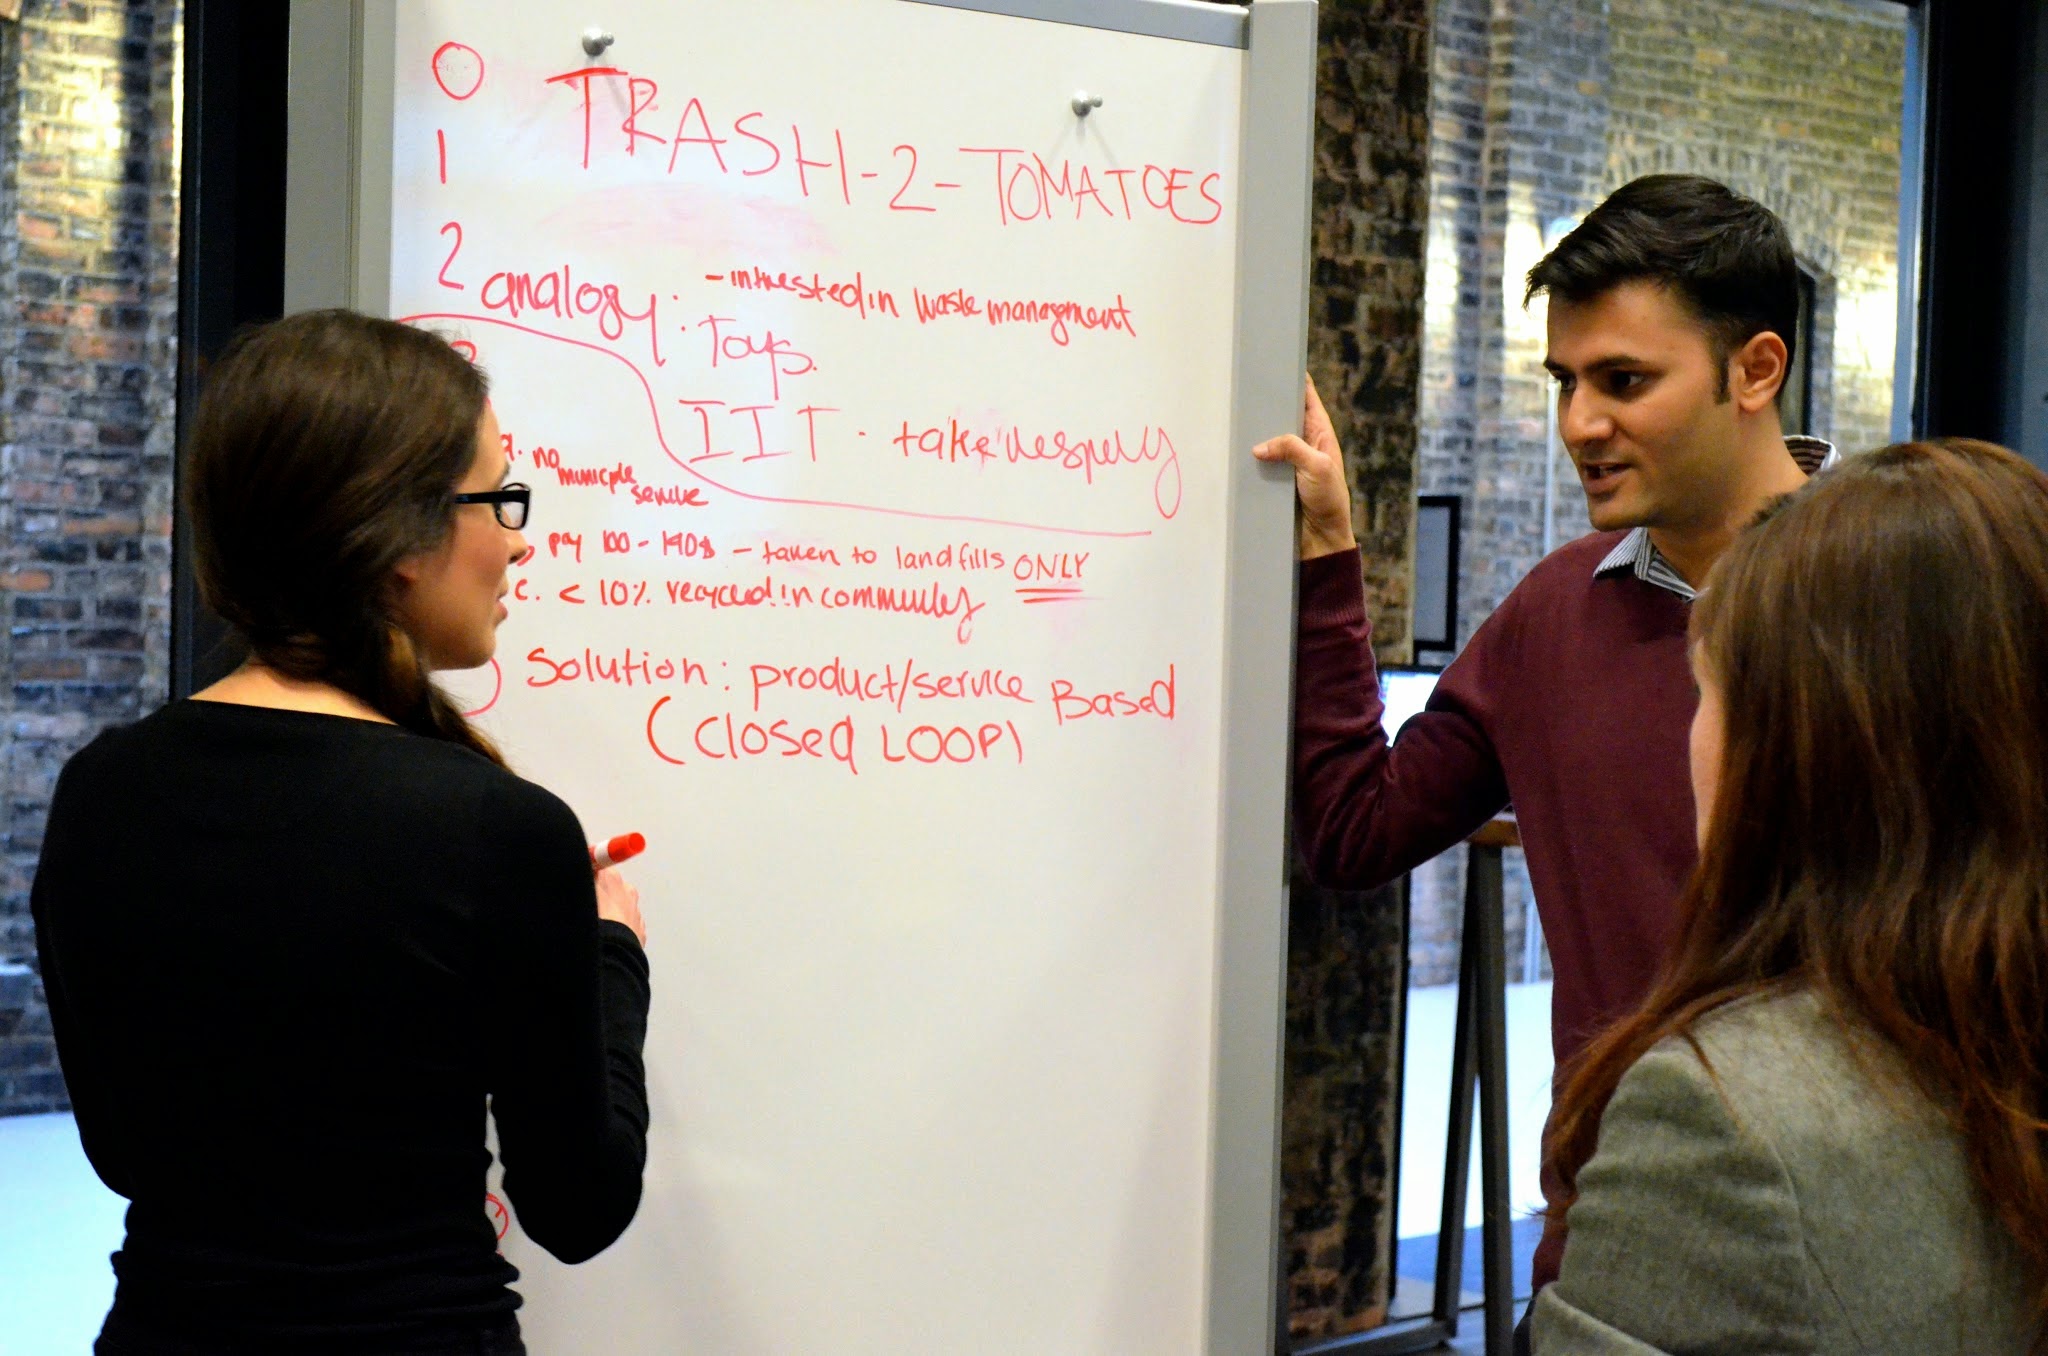 0
TRASH-2-TOMATOES
1
2
analogy: - intrested in waste managment
Toys.
IIT. take
no municple service
pay 100-140$ - taken to landfills ONLY
c. < 10% recycled in
Solution: product/service Based
(Closed LOOP)